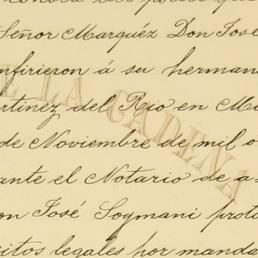 Señor Marquéz Don José
nfirieron á su herman
rtinez del Rio en M
de Noviembre de mil o
ante el Notario de a
on José Sogmani proto
itos legales por manda
LA CADENA